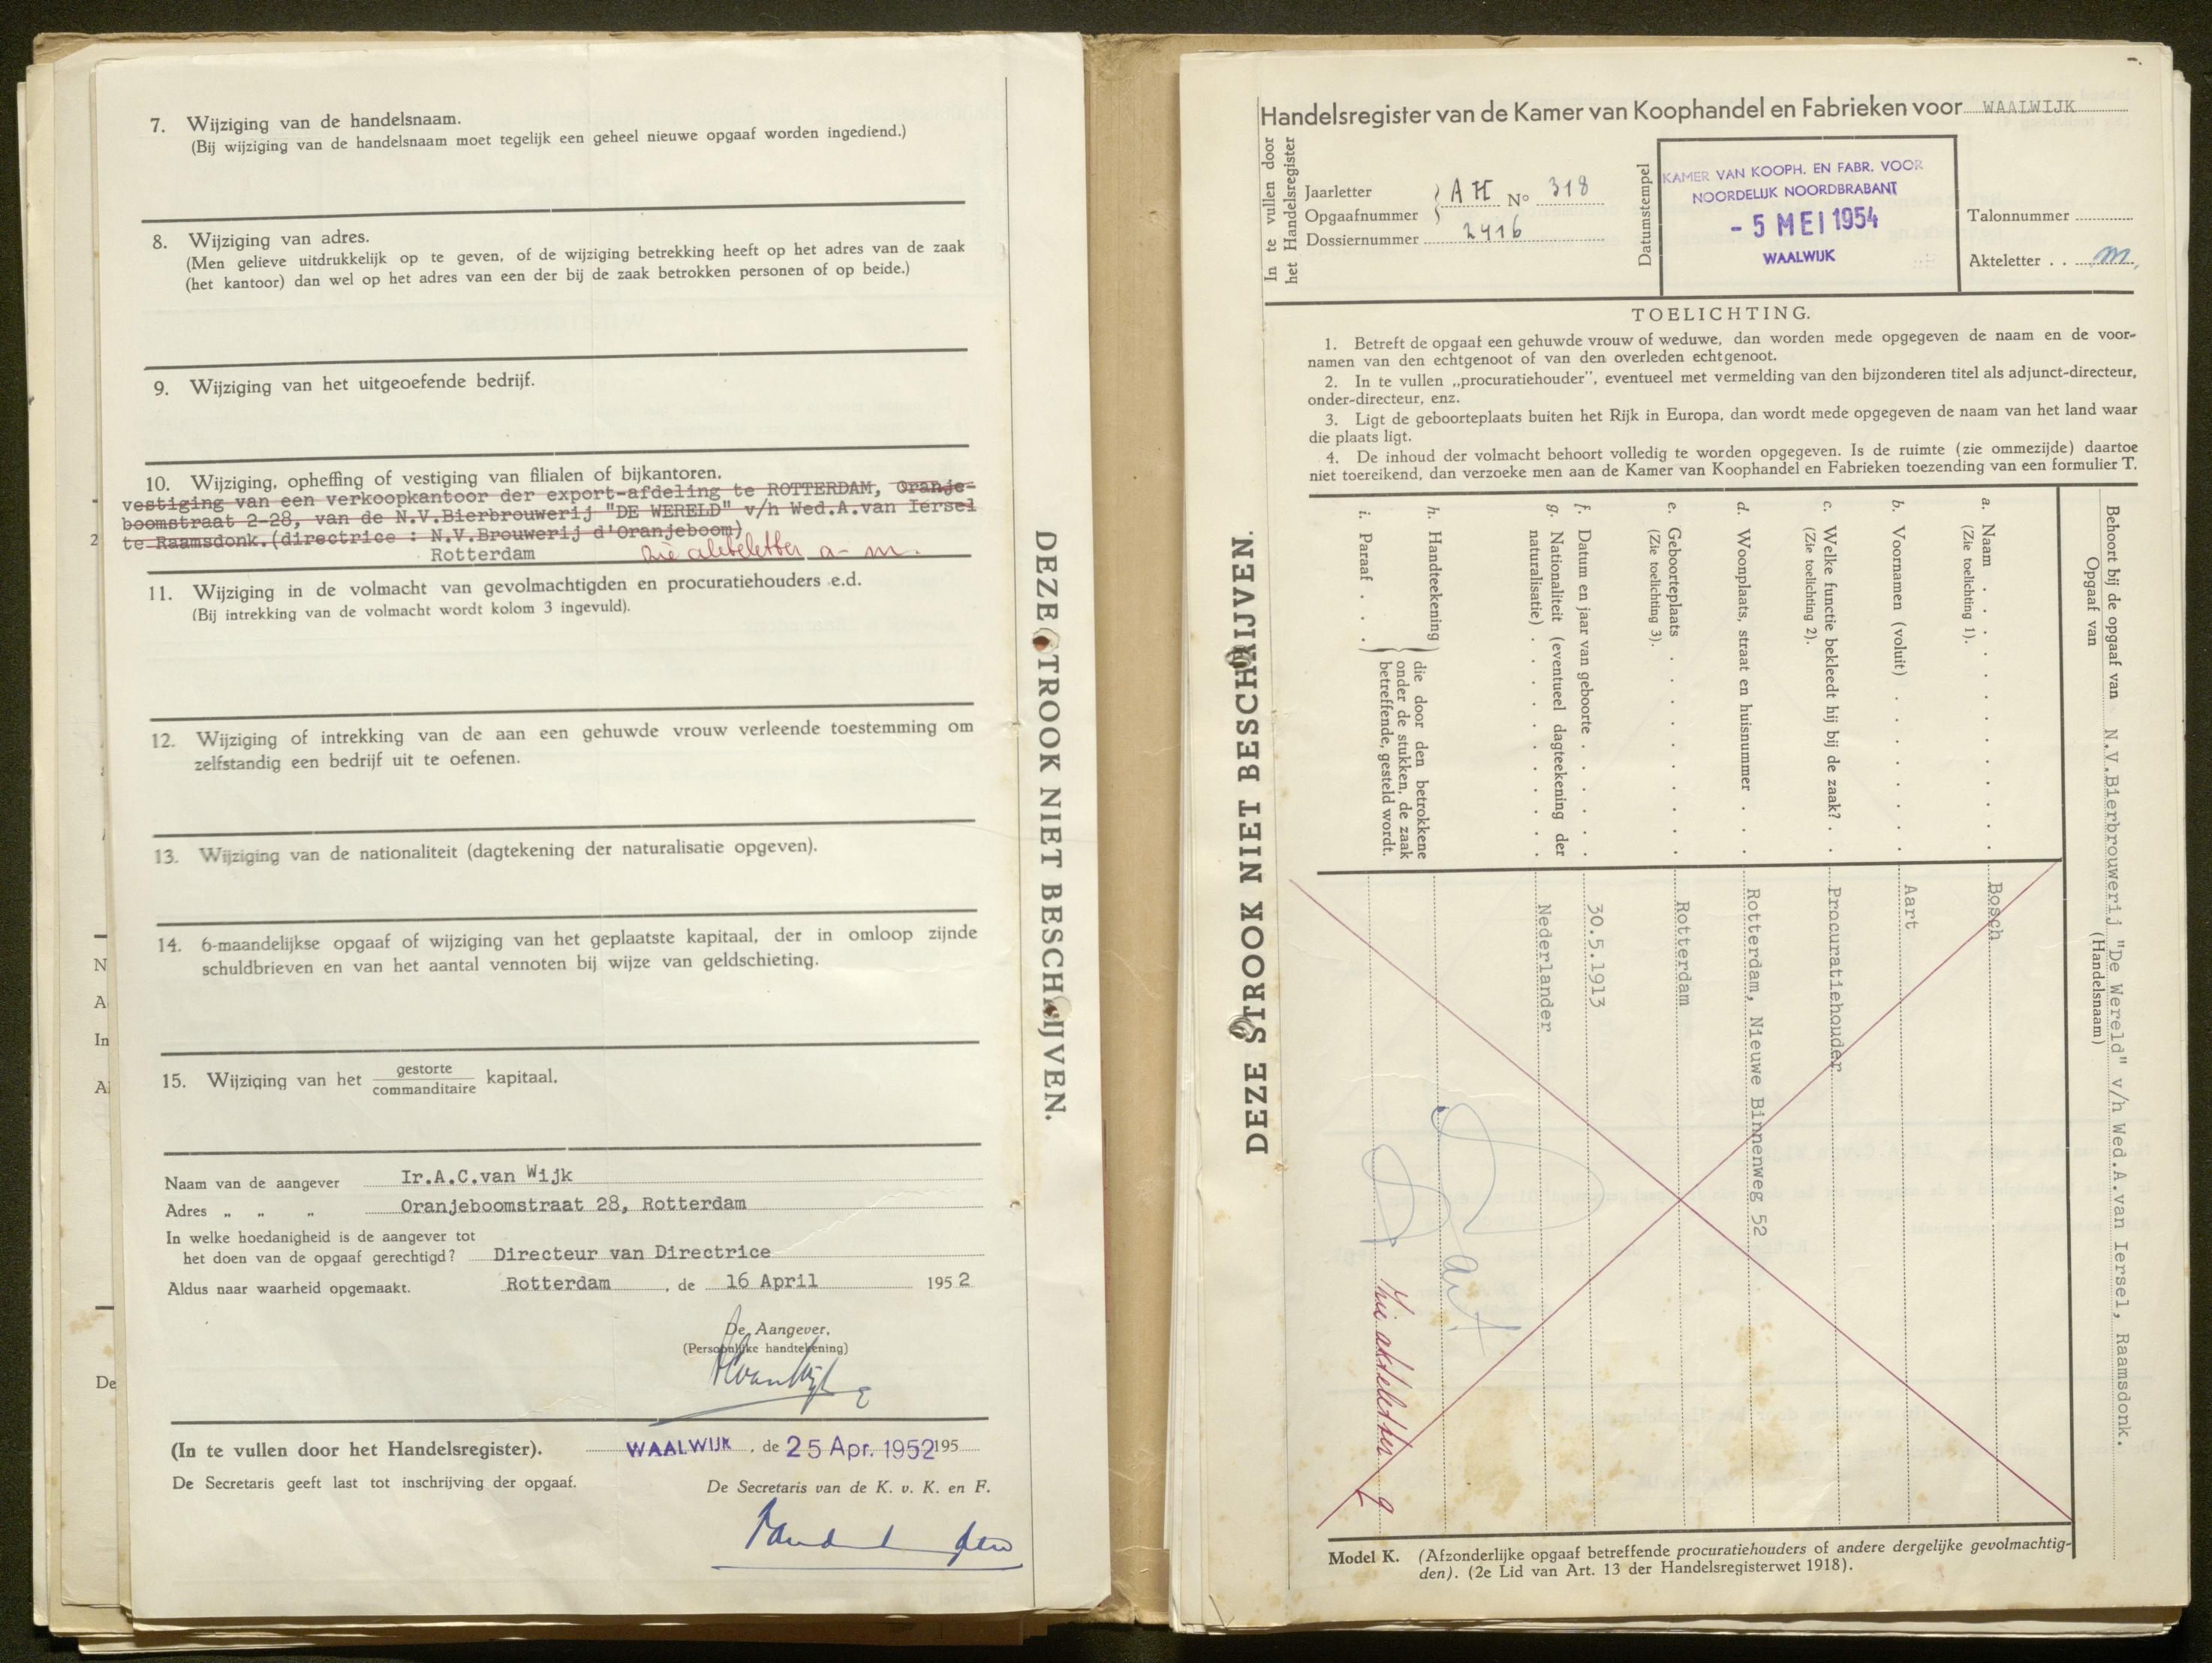 7. Wijziging van de handelsnaam.
(Bij wijziging van de handelsnaam moet tegelijk een geheel nieuwe opgaaf worden ingediend.)
8. Wijziging van adres.
(Men gelieve uitdrukkelijk op te geven, of de wijziging betrekking heeft op het adres van de zaak
(het kantoor) dan wel op het adres van een der bij de zaak betrokken personen of op beide.)
9. Wijziging van het uitgeoefende bedrijf.
10. Wijziging, opheffing of vestiging van filialen of bijkantoren.
vestiging van een verkoopkantoor der export-afdeling te ROTTERDAM, Oranje-
boomstraat 2-28, van de N.V.Bierbrouwerij "DE WERELD" v/h Wed.A.van Iersel
te Raamsdonk.(directrice : N.V.Brouwerij d'Oranjeboom)
Rotterdam zie akteletter a- m.
11. Wijziging in de volmacht van gevolmachtigden en procuratiehouders e.d.
(Bij intrekking van de volmacht wordt kolom 3 ingevuld).
12. Wijziging of intrekking van de aan een gehuwde vrouw verleende toestemming om
zelfstandig een bedrijf uit te oefenen.
13. Wijziging van de nationaliteit (dagtekening der naturalisatie opgeven).
14. 6-maandelijkse opgaaf of wijziging van het geplaatste kapitaal, der in omloop zijnde
schuldbrieven en van het aantal vennoten bij wijze van geldschieting.
15. Wijziging van het gestorte
commanditaire kapitaal.
Naam van de aangever Ir.A.C.van Wijk
Adres „ „ „ Oranjeboomstraat 28, Rotterdam
In welke hoedanigheid is de aangever tot
het doen van de opgaaf gerechtigd? Directeur van Directrice
Aldus naar waarheid opgemaakt. Rotterdam , de 16 April 1952
De Aangever,
(Persoonlijke handtekening)
(In te vullen door het Handelsregister). WAALWIJK , de 25 Apr. 1952 195
De Secretaris geeft last tot inschrijving der opgaaf. De Secretaris van de K. v. K. en F.
DEZE STROOK NIET BESCHRIJVEN.
DEZE STROOK NIET BESCHRIJVEN.
Handelsregister van de Kamer van Koophandel en Fabrieken voor WAALWIJK
In te vullen door
het Handelsregister
Jaarletter
Opgaafnummer
A H No 318
Dossiernummer 2416
Datumstempel
KAMER VAN KOOPH. EN FABR. VOOR
NOORDELIJK NOORDBRABANT
- 5 MEI 1954
WAALWIJK
Talonnummer
Akteletter . . m.
TOELICHTING.
1. Betreft de opgaaf een gehuwde vrouw of weduwe, dan worden mede opgegeven de naam en de voor-
namen van den echtgenoot of van den overleden echtgenoot.
2. In te vullen „procuratiehouder”, eventueel met vermelding van den bijzonderen titel als adjunct-directeur,
onder-directeur, enz.
3. Ligt de geboorteplaats buiten het Rijk in Europa, dan wordt mede opgegeven de naam van het land waar
die plaats ligt.
4. De inhoud der volmacht behoort volledig te worden opgegeven. Is de ruimte (zie ommezijde) daartoe
niet toereikend, dan verzoeke men aan de Kamer van Koophandel en Fabrieken toezending van een formulier T.
Behoort bij de opgaaf van N.V.Bierbrouwerij "De Wereld" v/h Wed.A.van Iersel, Raamsdonk.
Opgaaf van (Handelsnaam)
a. Naam . . . . . . . . Bosch
(Zie toelichting 1).
b. Voornamen (voluit) . . . . . Aart
c. Welke functie bekleedt hij bij de zaak? . . Procuratiehouder
(Zie toelichting 2).
d. Woonplaats, straat en huisnummer . . Rotterdam, Nieuwe Binnenweg 52
e. Geboorteplaats . . . . . . Rotterdam
(Zie toelichting 3).
f. Datum en jaar van geboorte . . . . 30.5.1913
g. Nationaliteit (eventueel dagteekening der
naturalisatie) . . . . . . . Nederlander
h. Handteekening
i. Paraaf . . .
die door den betrokkene
onder de stukken, de zaak
betreffende, gesteld wordt.
zie akteletter
Model K. (Afzonderlijke opgaaf betreffende procuratiehouders of andere dergelijke gevolmachtig-
den). (2e Lid van Art. 13 der Handelsregisterwet 1918).